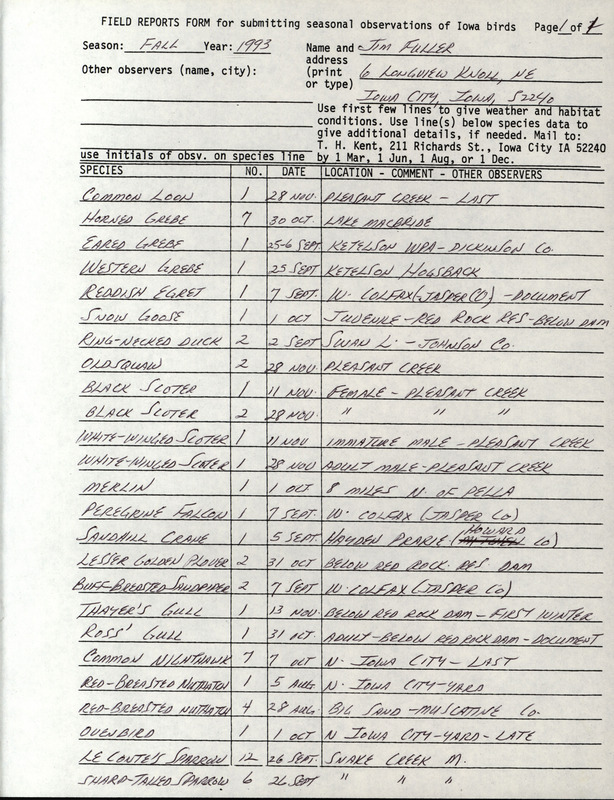 FIELD REPORTS FORM for submitting seasonal observations of Iowa birds Page 1 of 1
Season: FALL Year: 1993 Name and JIM FULLER
address
Other observers (name, city): (print 6 LONGVIEW KNOLL, NE
or type)
IOWA CITY, IOWA, 52240
Use first few lines to give weather and habitat
conditions. Use line(s) below species data to
give additional details, if needed. Mail to:
T. H. Kent, 211 Richards St., Iowa City IA 52240
use initials of obsv. on species line by 1 Mar, 1 Jun, 1 Aug, or 1 Dec.
SPECIES NO. DATE LOCATION - COMMENT - OTHER OBSERVERS
COMMON LOON 1 28 NOV. PLEASANT CREEK - LAST
HORNED GREBE 7 30 OCT. LAKE MACBRIDE
EARED GREBE 1 25-6 SEPT KETELSON WPA - DICKINSON CO.
WESTERN GREBE 1 25 SEPT KETELSON HOGSBACK
REDDISH EGRET 1 7 SEPT. W. COLFAX (JASPER CO) - DOCUMENT
SNOW GOOSE 1 1 OCT JUVENILE - RED ROCK RES - BELOW DAM
RING-NECKED DUCK 2 2 SEPT SWAN L. - JOHNSON CO.
OLDSQUAW 2 28 NOV PLEASANT CREEK
BLACK SCOTER 1 11 NOV. FEMALE - PLEASANT CREEK
BLACK SCOTER 2 28 NOV. " " "
WHITE-WINGED SCOTER 1 11 NOV IMMATURE MALE - PLEASANT CREEK
WHITE-WINGED SCOTER 1 28 NOV ADULT MALE - PLEASANT CREEK
MERLIN 1 1 OCT 8 MILES N. OF PELLA
PEREGRINE FALCON 1 7 SEPT. W. COLFAX (JASPER CO)
SANDHILL CRANE 1 5 SEPT. HAYDEN PRARIE (HOWARD CO)
LESSER GOLDEN PLOVER 2 31 OCT BELOW RED ROCK RES DAM
BUFF-BREASTED SANDPIPER 2 7 SEPT W. COLFAX (JASPER CO)
THAYER'S GULL 1 13 NOV. BELOW RED ROCK DAM - FIRST WINTER
ROSS' GULL 1 31 OCT ADULT - BELOW RED ROCK DAM - DOCUMENT
COMMON NIGHTHAWK 7 7 OCT N. IOWA CITY - LAST
RED-BREASTED NUTHATCH 1 5 AUG N. IOWA CITY - YARD
RED-BREASTED NUTHATCH 4 28 AUG. BIG SAND - MUSCATINE CO.
OVENBIRD 1 1 OCT N IOWA CITY - YARD - LATE
LE CONTE'S SPARROW 12 26 SEPT. SNAKE CREEK M.
SHARP-TAILED SPARROW 6 26 SEPT " " "